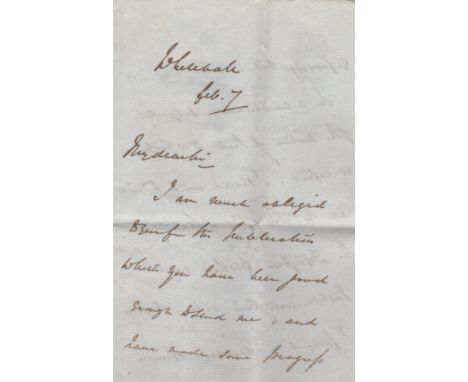 Whitehall
Feb. 7
My dear Sir
I am much obliged
to you for the publication
which you have been good
enough to send me, and
have made some progress